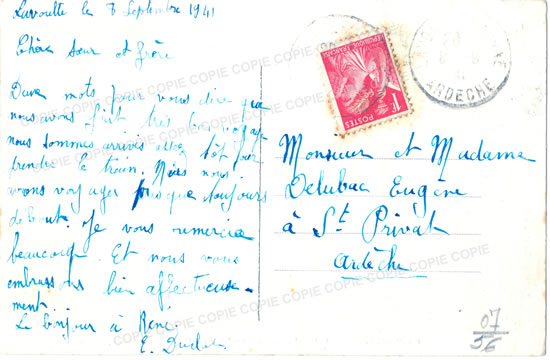 Lavoulte le 8 Septembre 1941
Chère sœur et frère
Deux mots pour vous dire que
nous avons fait très bon voyage
nous sommes arrivés assez tôt pour
prendre le train. Mais nous
avons voyager presque toujours
debout. Je vous remercie
beaucoup. Et nous vous
embrassons bien affectueuse-
ment.
Le bonjour à René
E.
POSTES
1F
ARDECHE
Monsieur et Madame
Delubac Eugène
à St Privat
Ardèche
07
56
COPIE COPIE COPIE COPIE COPIE COPIE